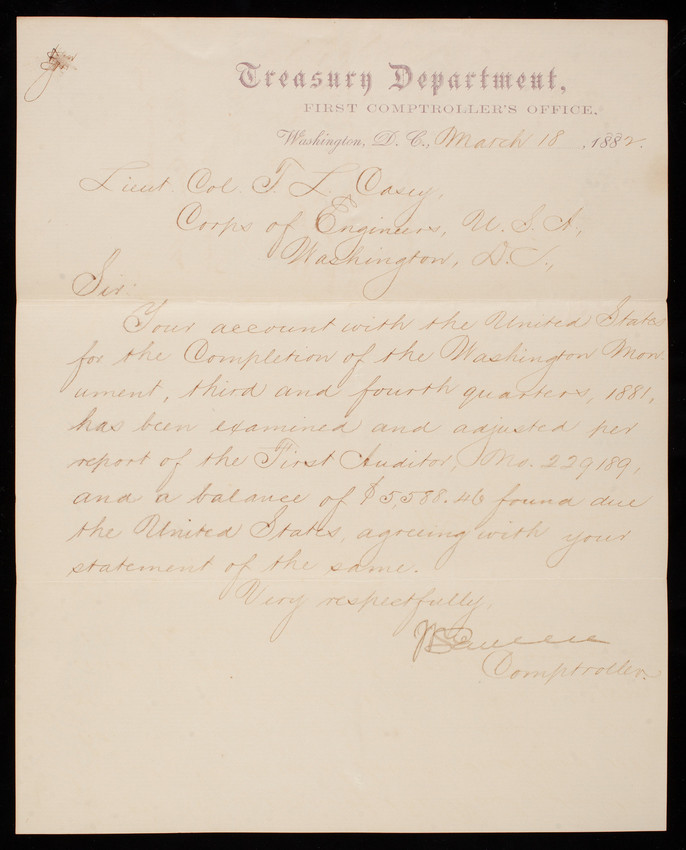 Treasury Department,
FIRST COMPTROLLER'S OFFICE.
Washington, D. C., March 18, 1882.
Lieut. Col. T. L. Casey,
Corps of Engineers, U. S. A.,
Washington, D. C.,
Sir:
Your account with the United States
for the Completion of the Washington Mon
ument, third and fourth quarters, 1881,
has been examined and adjusted per
report of the First Auditor, No. 229189,
and a balance of $5,588.46 found due
the United States, agreeing with your
statement of the same.
Very respectfully,
Comptroller.